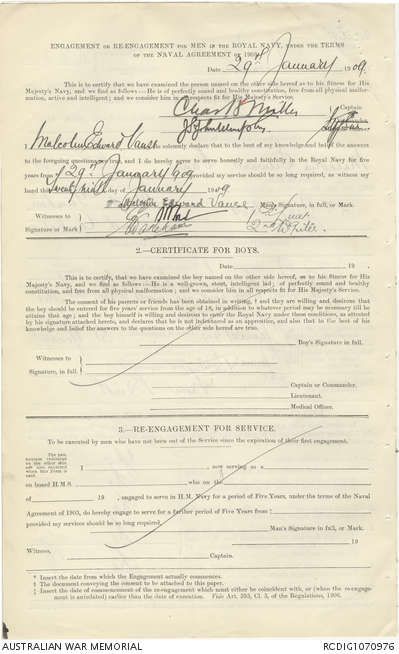 ENGAGEMENT OR RE-ENGAGEMENT FOR MEN IN THE ROYAL NAVY, UNDER THE TERMS
OF THE NAVAL AGREEMENT OF 1903.
Date 29th January 1909
This is to certify that we have examined the person named on the other side hereof as to his fitness for His
Majesty's Navy, and we find as follows:—He is of perfectly sound and healthy constitution, free from all physical malformation,
active and intelligent; and we consider him in all respects fit for His Majesty's Service.
Chas B Miller Captain
I Malcolm Edward Vause do solemnly declare that to the best of my knowledge and belief the answers
to the foregoing questions are true, and I do hereby agree to serve honestly and faithfully in the Royal Navy for five
years from * 29th January 1909 provided my service should be so long required, as witness my
hand this twenty ninth day of January 1909
Malcolm Edward Vause Man's Signature in full, or Mark.
Witnesses to
Signature or Mark
2.—CERTIFICATE FOR BOYS.
Date 19 .
This is to certify, that we have examined the boy named on the other side hereof, as to his fitness for His Majesty's
Service, and we find as follows:—He is a well-grown, stout, intelligent lad; of perfectly sound and healthy
constitution, and free from all physical malformation; and we consider him in all respects fit for His Majesty's Service.
The consent of his parents or friends has been obtained in writing, † and they are willing and desirous that
the boy should be entered for five years' service from the age of 18, in addition to whatever period may be necessary till he
attains that age; and the boy himself is willing and desirous to enter the Royal Navy under these conditions, as attested
by his signature attached hereto, and declares that he is not indentured as an apprentice, and also that to the best of his
knowledge and belief the answers to the questions on the other side hereof are true.
Boy's Signature in full.
Witnesses to
Signature, in full.
Captain or Commander.
Lieutenant.
Medical Officer.
3.—RE-ENGAGEMENT FOR SERVICE.
To be executed by men who have not been out of the Service since the expiration of their first engagement.
I , now serving as a
on board H.M.S. who on the
of 19 , engaged to serve in H.M. Navy for a period of Five Years, under the terms of the Naval
Agreement of 1903, do hereby engage to serve for a further period of Five Years from ‡
provided my services should be so long required.
Man's Signature in full, or Mark.
19
Witness,
Captain.
* Insert the date from which the Engagement actually commences.
† The document conveying the consent to be attached to this paper.
‡ Insert date of commencement of the re-engagement which must either be coincident with, or (when the re-engagement
is antedated) earlier than the date of execution. Vide Art. 393, Cl. 3, of the Regulations, 1906.
AUSTRALIAN WAR MEMORIAL RCDIG1070976